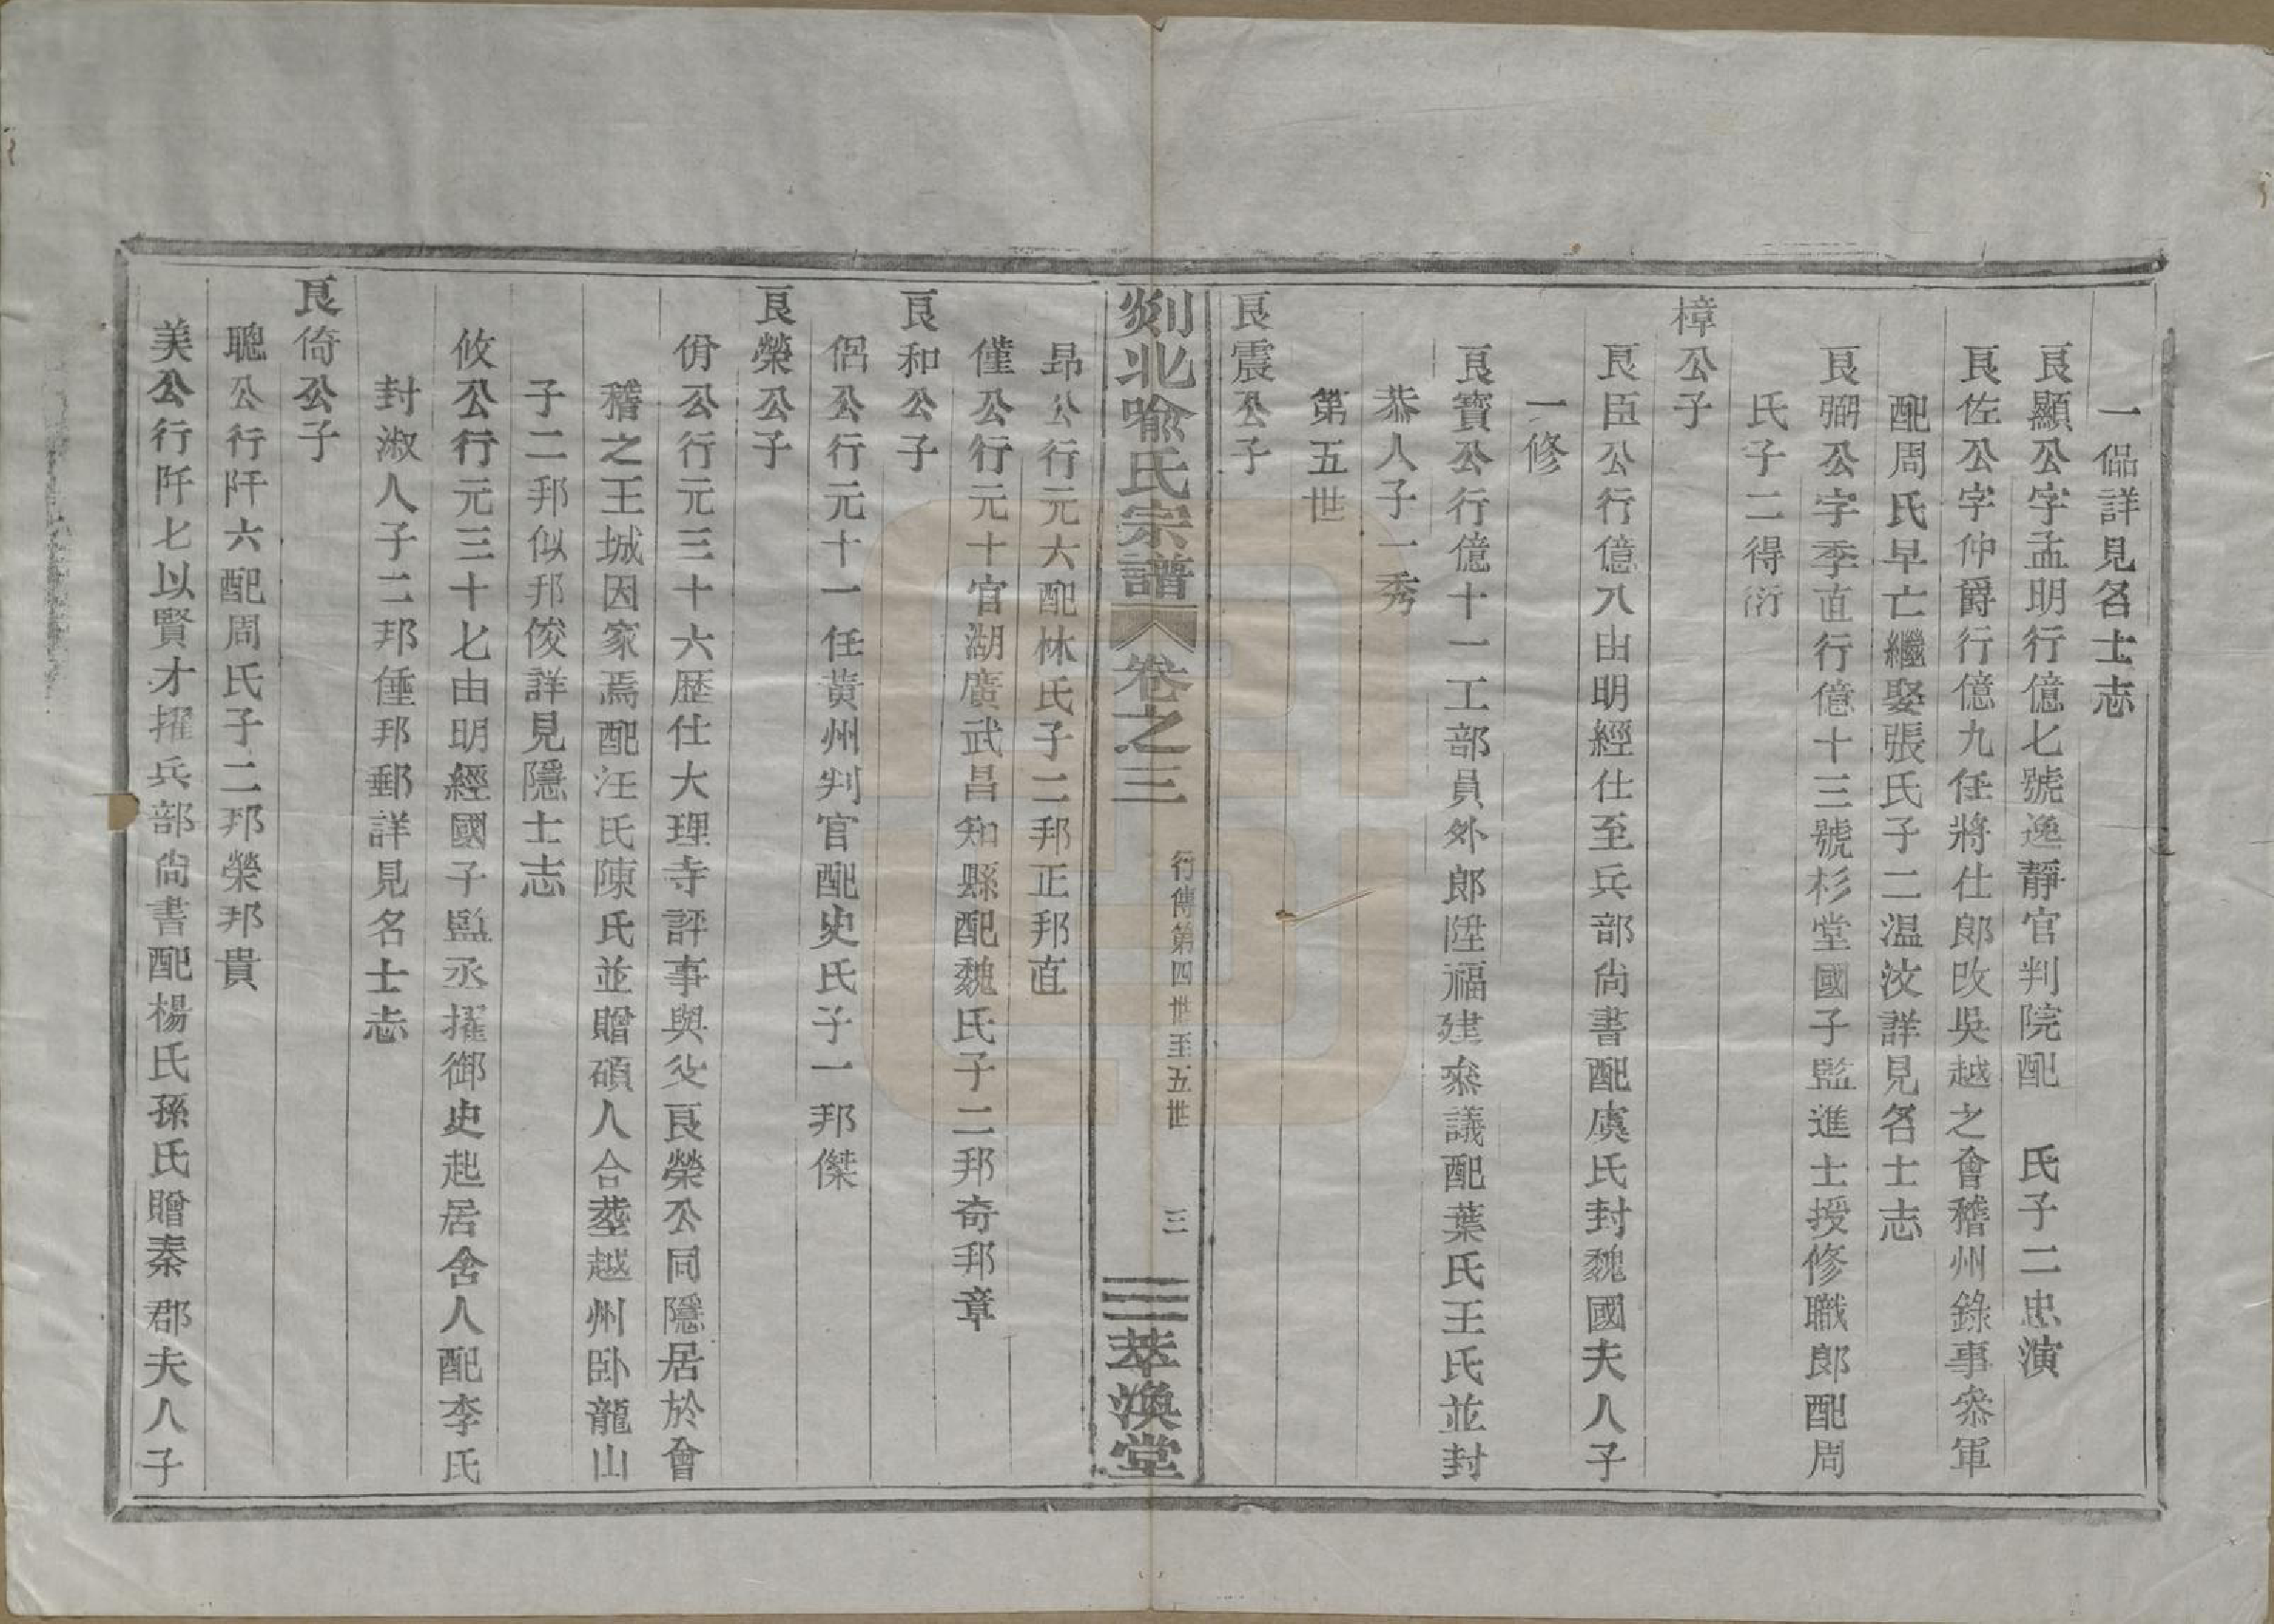 一偘詳見名士志
良顯公字孟明行億七號逸靜官判院配　氏子二忠演
良佐公字仲爵行億九任將仕郎改吳越之會稽州錄事叅軍
配周氏早亡繼娶張氏子二温汶詳見名士志
良弼公字季直行億十三號杉堂國子監進士授修職郎配周
氏子二得衍
樟公子
良臣公行億八由明經仕至兵部尙書配虞氏封魏國夫人子
一修
良寶公行億十一工部員外郎陞福建叅議配葉氏王氏並封
恭人子一秀
第五世
良震公子
剡北喻氏宗譜
卷之三
行傳第四世至五世
三
萃渙堂
昻公行元六配林氏子二邦正邦直
僅公行元十官湖廣武昌知縣配魏氏子二邦奇邦章
良和公子
侶公行元十一任黃州判官配史氏子一邦傑
良榮公子
佾公行元三十六歷仕大理寺評事與父良榮公同隱居於會
稽之王城因家焉配汪氏陳氏並贈碩人合塟越州卧龍山
子二邦似邦俊詳見隱士志
攸公行元三十七由明經國子監丞擢御史起居舍人配李氏
封淑人子二邦倕邦郵詳見名士志
良倚公子
聰公行阡六配周氏子二邦榮邦貴
美公行阡七以賢才擢兵部尙書配楊氏孫氏贈秦郡夫人子